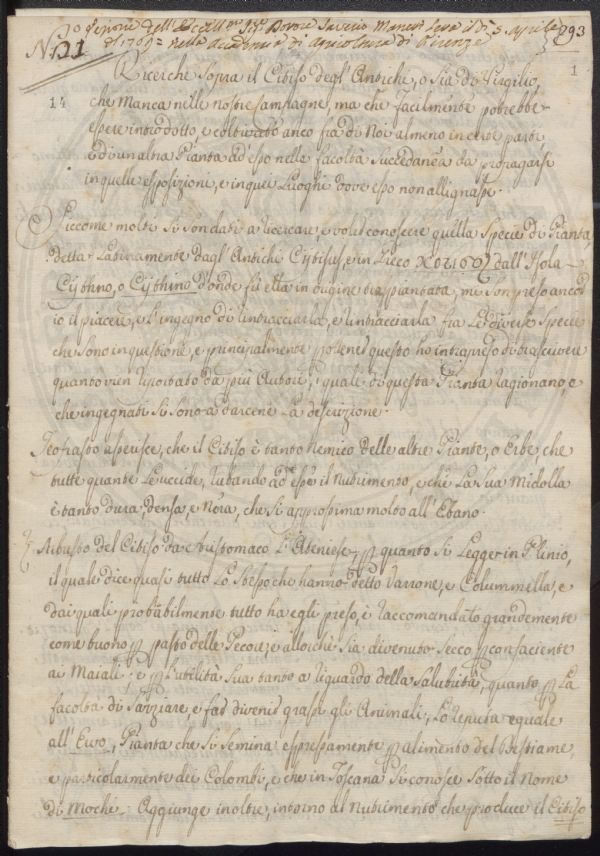 dell' Eccell.mo Sig.r Dottore Saverio Manetti Letta il dì 5. Aprile 293
di 1769 = nella Accademia di Agricoltura di Firenze
N. 121
1
Ricerche sopra il Citiso degl' Antichi, o sia di Virgilio,
14 che manca nelle nostre Campagne, ma che facilmente potrebbe
essere introdotto, e colturato anco fra di Noi almeno in certe parti,
e di un altra Pianta ad esso nella facoltà succedanea da propagarsi
in quelle esposizioni, e in quei Luoghi dove esso non allignasse.
Siccome molti si son dati a ricercare, e voler conoscere quella Specie di Pianta
detta Latinamente dagl' Antichi Cytisus, e in Greco dall' Isola
Cythno, o Cythino d'onde fù essa in origine trapiantata, mi son preso ancor
io il piacere, e l'ingegno di rintracciarla, e rintracciarla fra le diverse Specie
che sono in questione, e principalmente per questo ho intrapreso di trascrivere
quanto vien riportato da più Autori, i quali di questa Pianta ragionano, e
che ingegnati si sono a darcene la descrizione.
Teofrasto asserisce, che il Citiso è tanto nemico delle altre Piante, o Erbe, che
tutte quante le uccide, rubando ad esse il nutrimento, e che la sua Midolla
è tanto dura, densa, e nera, che si approssima molto all' Ebano.
Arbusto del Citiso da Aristomaco l'Ateniese, per quanto si Legge in Plinio,
il quale dice quasi tutto lo stesso che hanno detto Varrone, e Columella, e
dai quali probabilmente tutto ha egli preso, è raccomandato grandemente
come buono per pasto delle Pecore, e allorchè sia divenuto secco per confaciente
ai Maiali; e per l'utilità sua tanto a riguardo della salubrità, quanto per la
facoltà di saziare, e far divenir grassi gli Animali, Lo reputa eguale
all' Ervo, Pianta che si semina espressamente per alimento del Bestiame,
e particolarmente dei Colombi, e che in Toscana si conosce sotto il nome
di Moche. Aggiunge inoltre, intorno al nutrimento che produce il Citiso